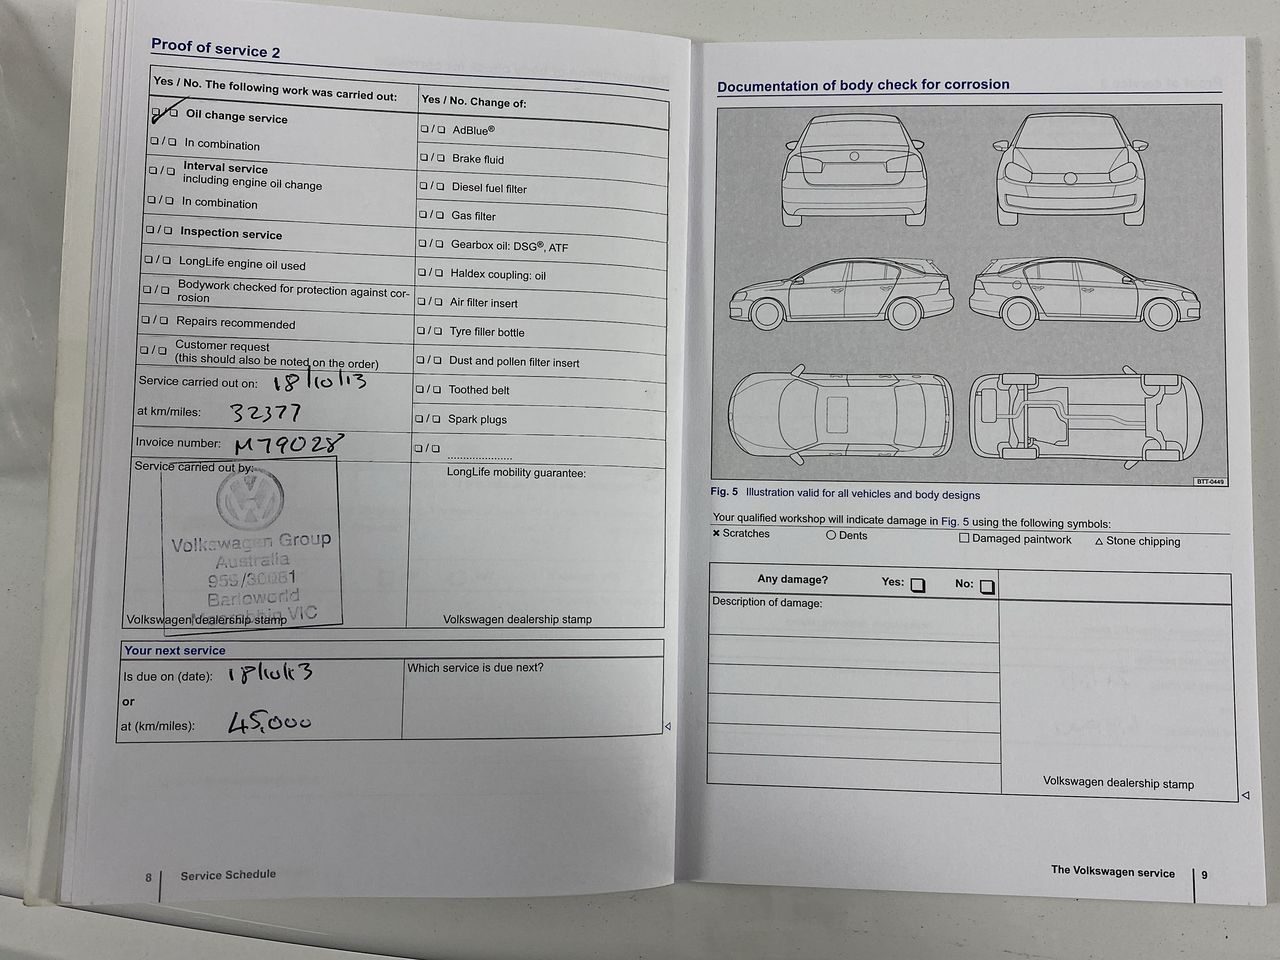 Proof of service 2
Yes / No. The following work was carried out:
❏ / ❏ Oil change service
❏ / ❏ In combination
❏ / ❏ Interval service
including engine oil change
❏ / ❏ In combination
❏ / ❏ Inspection service
❏ / ❏ LongLife engine oil used
❏ / ❏ Bodywork checked for protection against cor-
rosion
❏ / ❏ Repairs recommended
❏ / ❏ Customer request
(this should also be noted on the order)
Service carried out on: 18/10/13
at km/miles: 32377
Invoice number: M79028
Service carried out by:
Volkswagen Group
Australia
Barloworld
VIC
Volkswagen dealership stamp
Yes / No. Change of:
❏ / ❏ AdBlue®
❏ / ❏ Brake fluid
❏ / ❏ Diesel fuel filter
❏ / ❏ Gas filter
❏ / ❏ Gearbox oil: DSG®, ATF
❏ / ❏ Haldex coupling: oil
❏ / ❏ Air filter insert
❏ / ❏ Tyre filler bottle
❏ / ❏ Dust and pollen filter insert
❏ / ❏ Toothed belt
❏ / ❏ Spark plugs
❏ / ❏ ....................
LongLife mobility guarantee:
Volkswagen dealership stamp
Your next service
Is due on (date):
or
at (km/miles): 45,000
Which service is due next?
8 Service Schedule
Documentation of body check for corrosion
BTT-0449
Fig. 5 Illustration valid for all vehicles and body designs
Your qualified workshop will indicate damage in Fig. 5 using the following symbols:
× Scratches ○ Dents □ Damaged paintwork △ Stone chipping
Any damage? Yes: ❏ No: ❏
Description of damage:
Volkswagen dealership stamp
The Volkswagen service 9